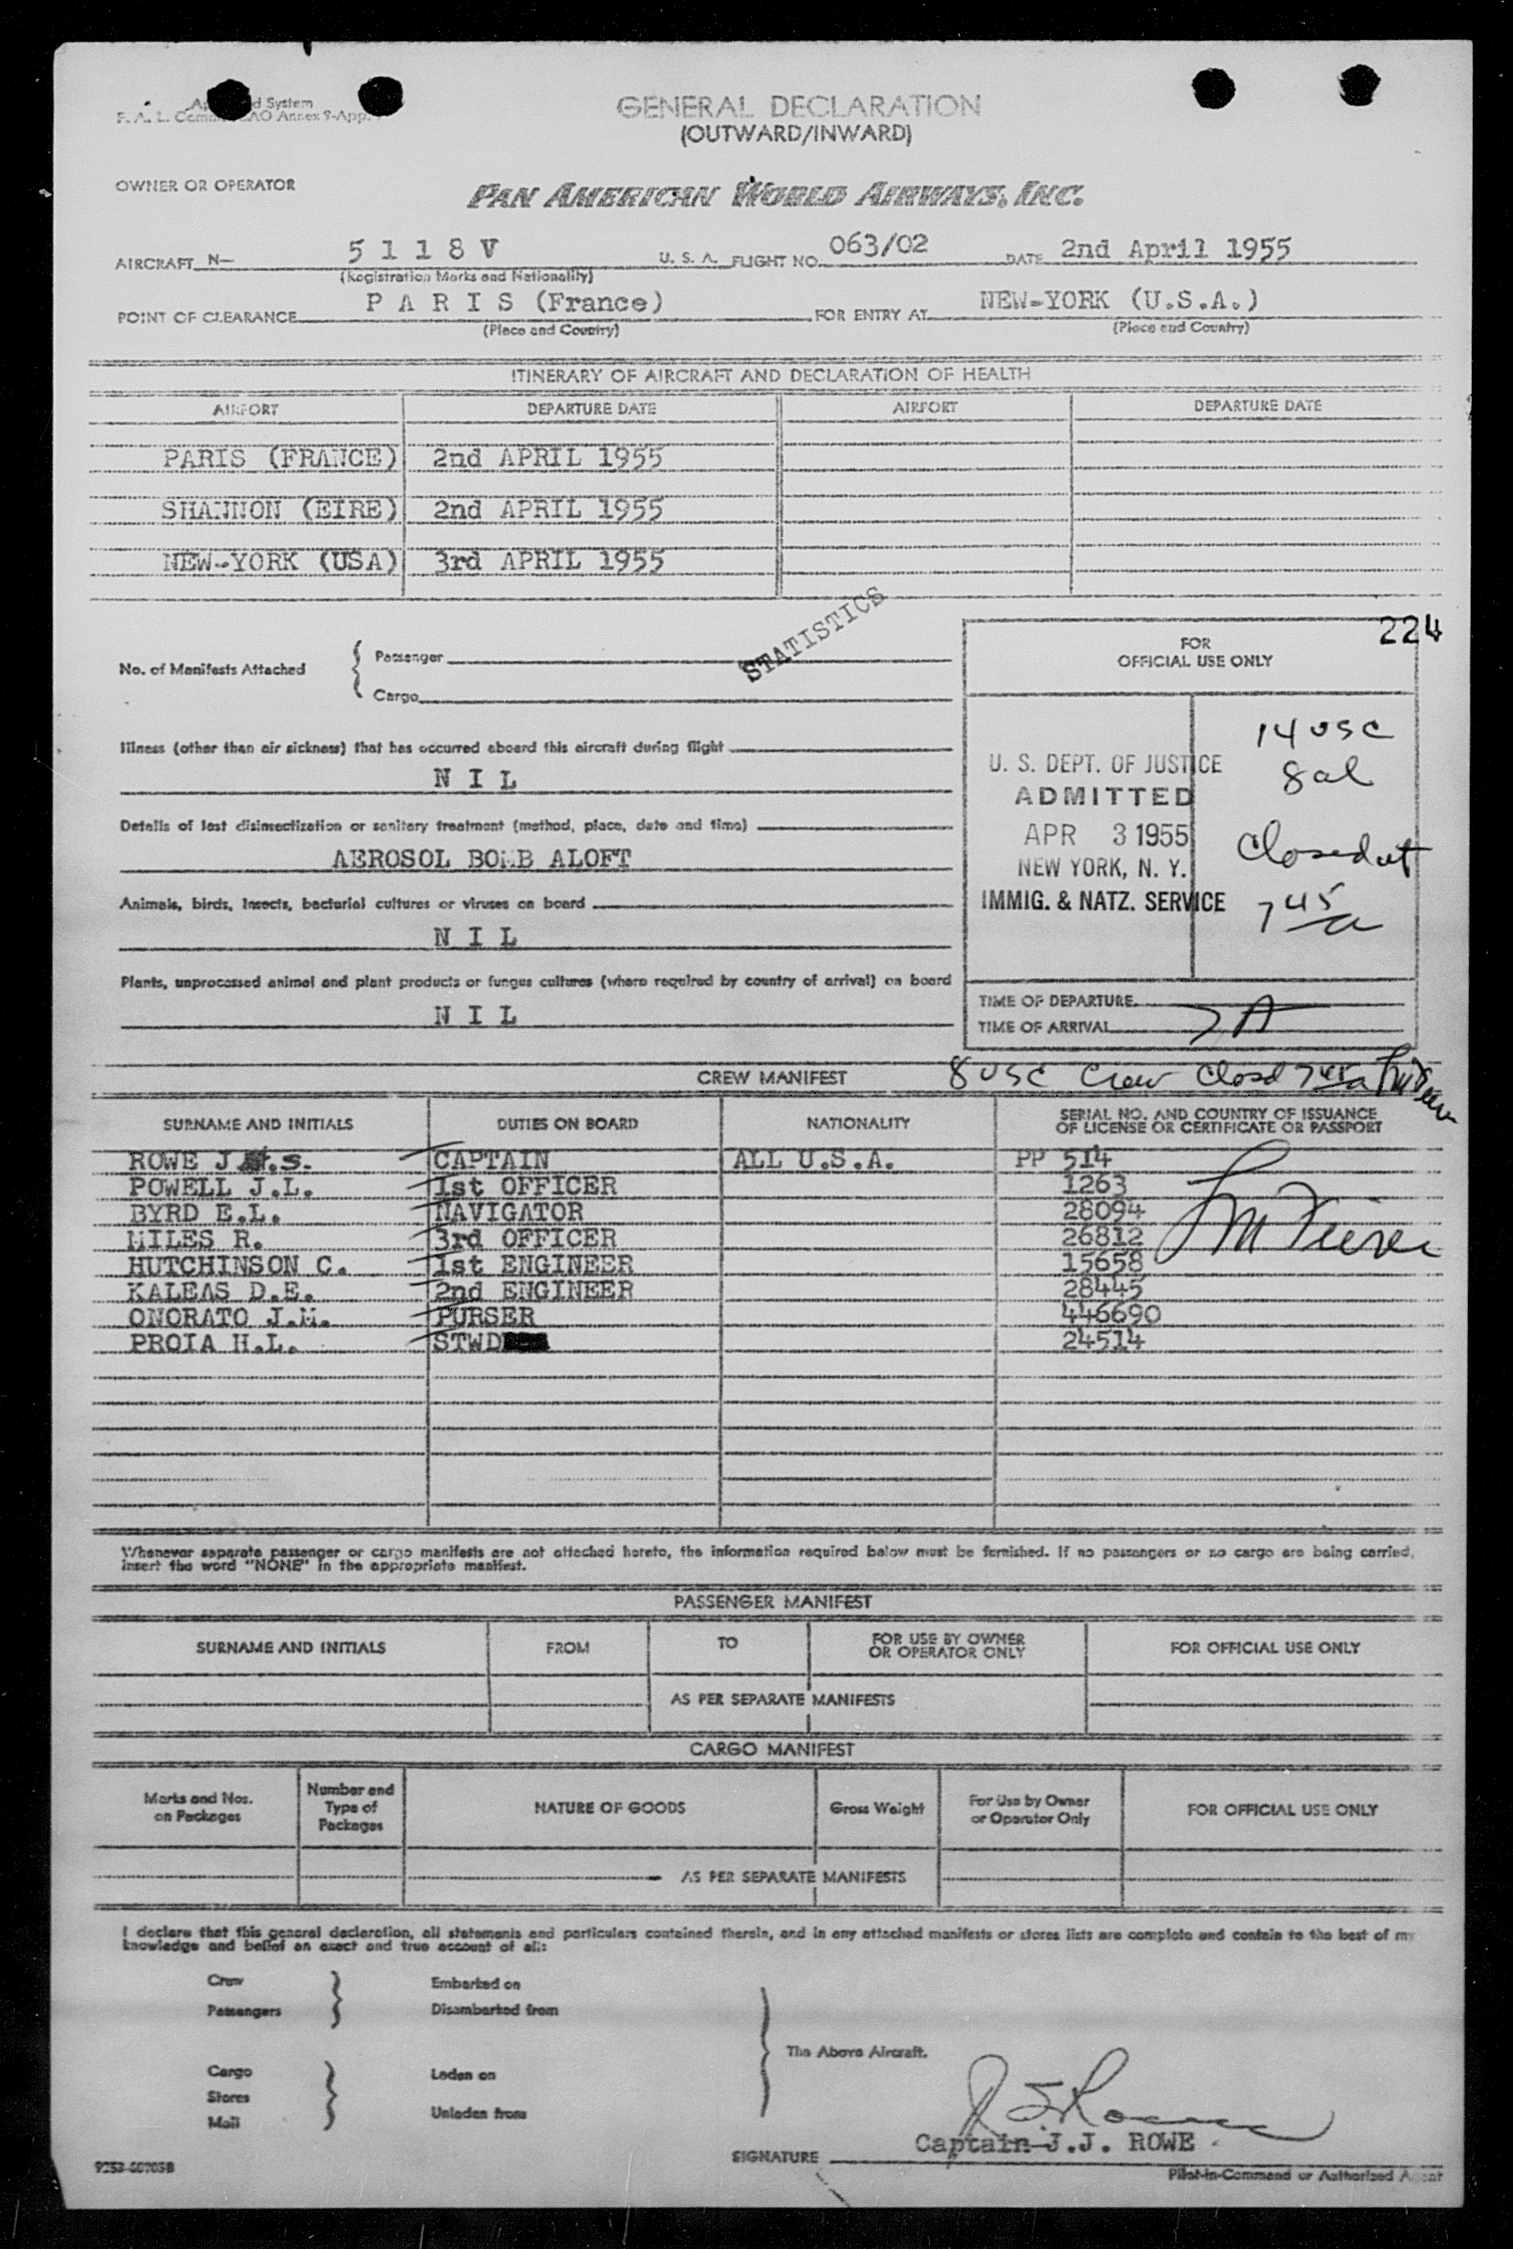 GENERAL DECLARATION
(OUTWARD/INWARD)
OWNER OR OPERATOR
PAN AMERICAN WORLD AIRWAYS, INC.
AIRCRAFT N- 5 1 1 8 V U. S. A. FLIGHT NO. 063/02 DATE 2nd April 1955
(Registration Marks and Nationality)
POINT OF CLEARANCE P A R I S (France) FOR ENTRY AT NEW-YORK (U.S.A.)
(Place and Country) (Place and Country)
ITINERARY OF AIRCRAFT AND DECLARATION OF HEALTH
AIRPORT DEPARTURE DATE AIRPORT DEPARTURE DATE
PARIS (FRANCE) 2nd APRIL 1955
SHANNON (EIRE) 2nd APRIL 1955
NEW-YORK (USA) 3rd APRIL 1955
STATISTICS
224
No. of Manifests Attached { Passenger
Cargo
FOR
OFFICIAL USE ONLY
14 USC
8 al
Closed at
7 45 a
U. S. DEPT. OF JUSTICE
ADMITTED
APR 3 1955
NEW YORK, N. Y.
IMMIG. & NATZ. SERVICE
Illness (other than air sickness) that has occurred aboard this aircraft during flight
N I L
Details of last disinsectization or sanitary treatment (method, place, date and time)
AEROSOL BOMB ALOFT
Animals, birds, insects, bacterial cultures or viruses on board
N I L
Plants, unprocessed animal and plant products or fungus cultures (where required by country of arrival) on board
N I L
TIME OF DEPARTURE
TIME OF ARRIVAL 7 A
CREW MANIFEST 8 USC Crew Closd 7 45 a
SURNAME AND INITIALS DUTIES ON BOARD NATIONALITY SERIAL NO. AND COUNTRY OF ISSUANCE
OF LICENSE OR CERTIFICATE OR PASSPORT
ROWE J.S. CAPTAIN ALL U.S.A. PP 514
POWELL J.L. 1st OFFICER 1263
BYRD E.L. NAVIGATOR 28094
MILES R. 3rd OFFICER 26812
HUTCHINSON C. 1st ENGINEER 15658
KALEAS D.E. 2nd ENGINEER 28445
ONORATO J.M. PURSER 446690
PROIA H.L. STWD 24514
Whenever separate passenger or cargo manifests are not attached hereto, the information required below must be furnished. If no passengers or no cargo are being carried,
insert the word "NONE" in the appropriate manifest.
PASSENGER MANIFEST
SURNAME AND INITIALS FROM TO FOR USE BY OWNER
OR OPERATOR ONLY FOR OFFICIAL USE ONLY
AS PER SEPARATE MANIFESTS
CARGO MANIFEST
Marks and Nos.
on Packages Number and
Type of
Packages NATURE OF GOODS Gross Weight For Use by Owner
or Operator Only FOR OFFICIAL USE ONLY
AS PER SEPARATE MANIFESTS
I declare that this general declaration, all statements and particulars contained therein, and in any attached manifests or stores lists are complete and contain to the best of my
knowledge and belief an exact and true account of all:
Crew Embarked on
Passengers Disembarked from
The Above Aircraft.
Cargo Laden on
Stores
Mail Unladen from
J S Rowe
Captain J.J. ROWE
SIGNATURE
Pilot-in-Command or Authorized Agent